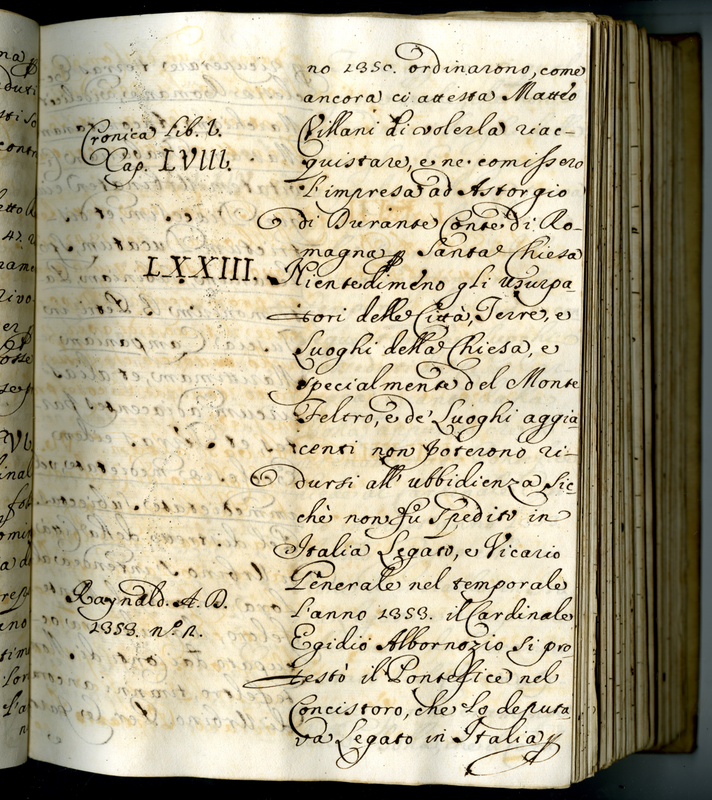 no 1350. ordinarono, come
ancora ci attesta Matteo
Cronica Lib. I.
Villani di volerla riac-
Cap. LVIII.
quistare, e ne comissero
l'impresa ad Astorgio
di Durante Conte di Ro-
magna p Santa Chiesa
LXXIII.
Nientedimeno gli usurpa-
tori delle Città, Terre, e
Luoghi della Chiesa, e
specialmente del Monte
Feltro, e de' Luoghi aggia
centi non poterono ri-
dursi all' ubbidienza sic
chè non fu spedito in
Italia Legato, e Vicario
Generale nel temporale
Raynald. A. D.
l'anno 1353. il Cardinale
1353. n.º 1.
Egidio Albornozio si pro
testò il Pontefice nel
Concistoro, che lo deputa
va Legato in Italia p